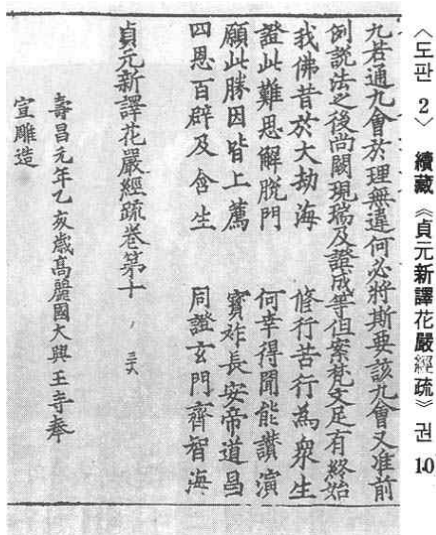 〈도판 2〉 續藏 《貞元新譯花嚴經疏》 권 10
九若通九會於理無違何必將斯典該九會又准前
例說法之後尚闕現瑞及證成等但案梵文足有終始
我佛昔於大劫海 修行苦行為衆生
證此難思解脫門 何幸得聞能讃演
願此勝因皆上薦 寶祚長安帝道昌
四恩百辟及含生 同證玄門齊智海
貞元新譯花嚴經疏卷第十
壽昌元年乙亥歲高麗國大興王寺奉
宣雕造